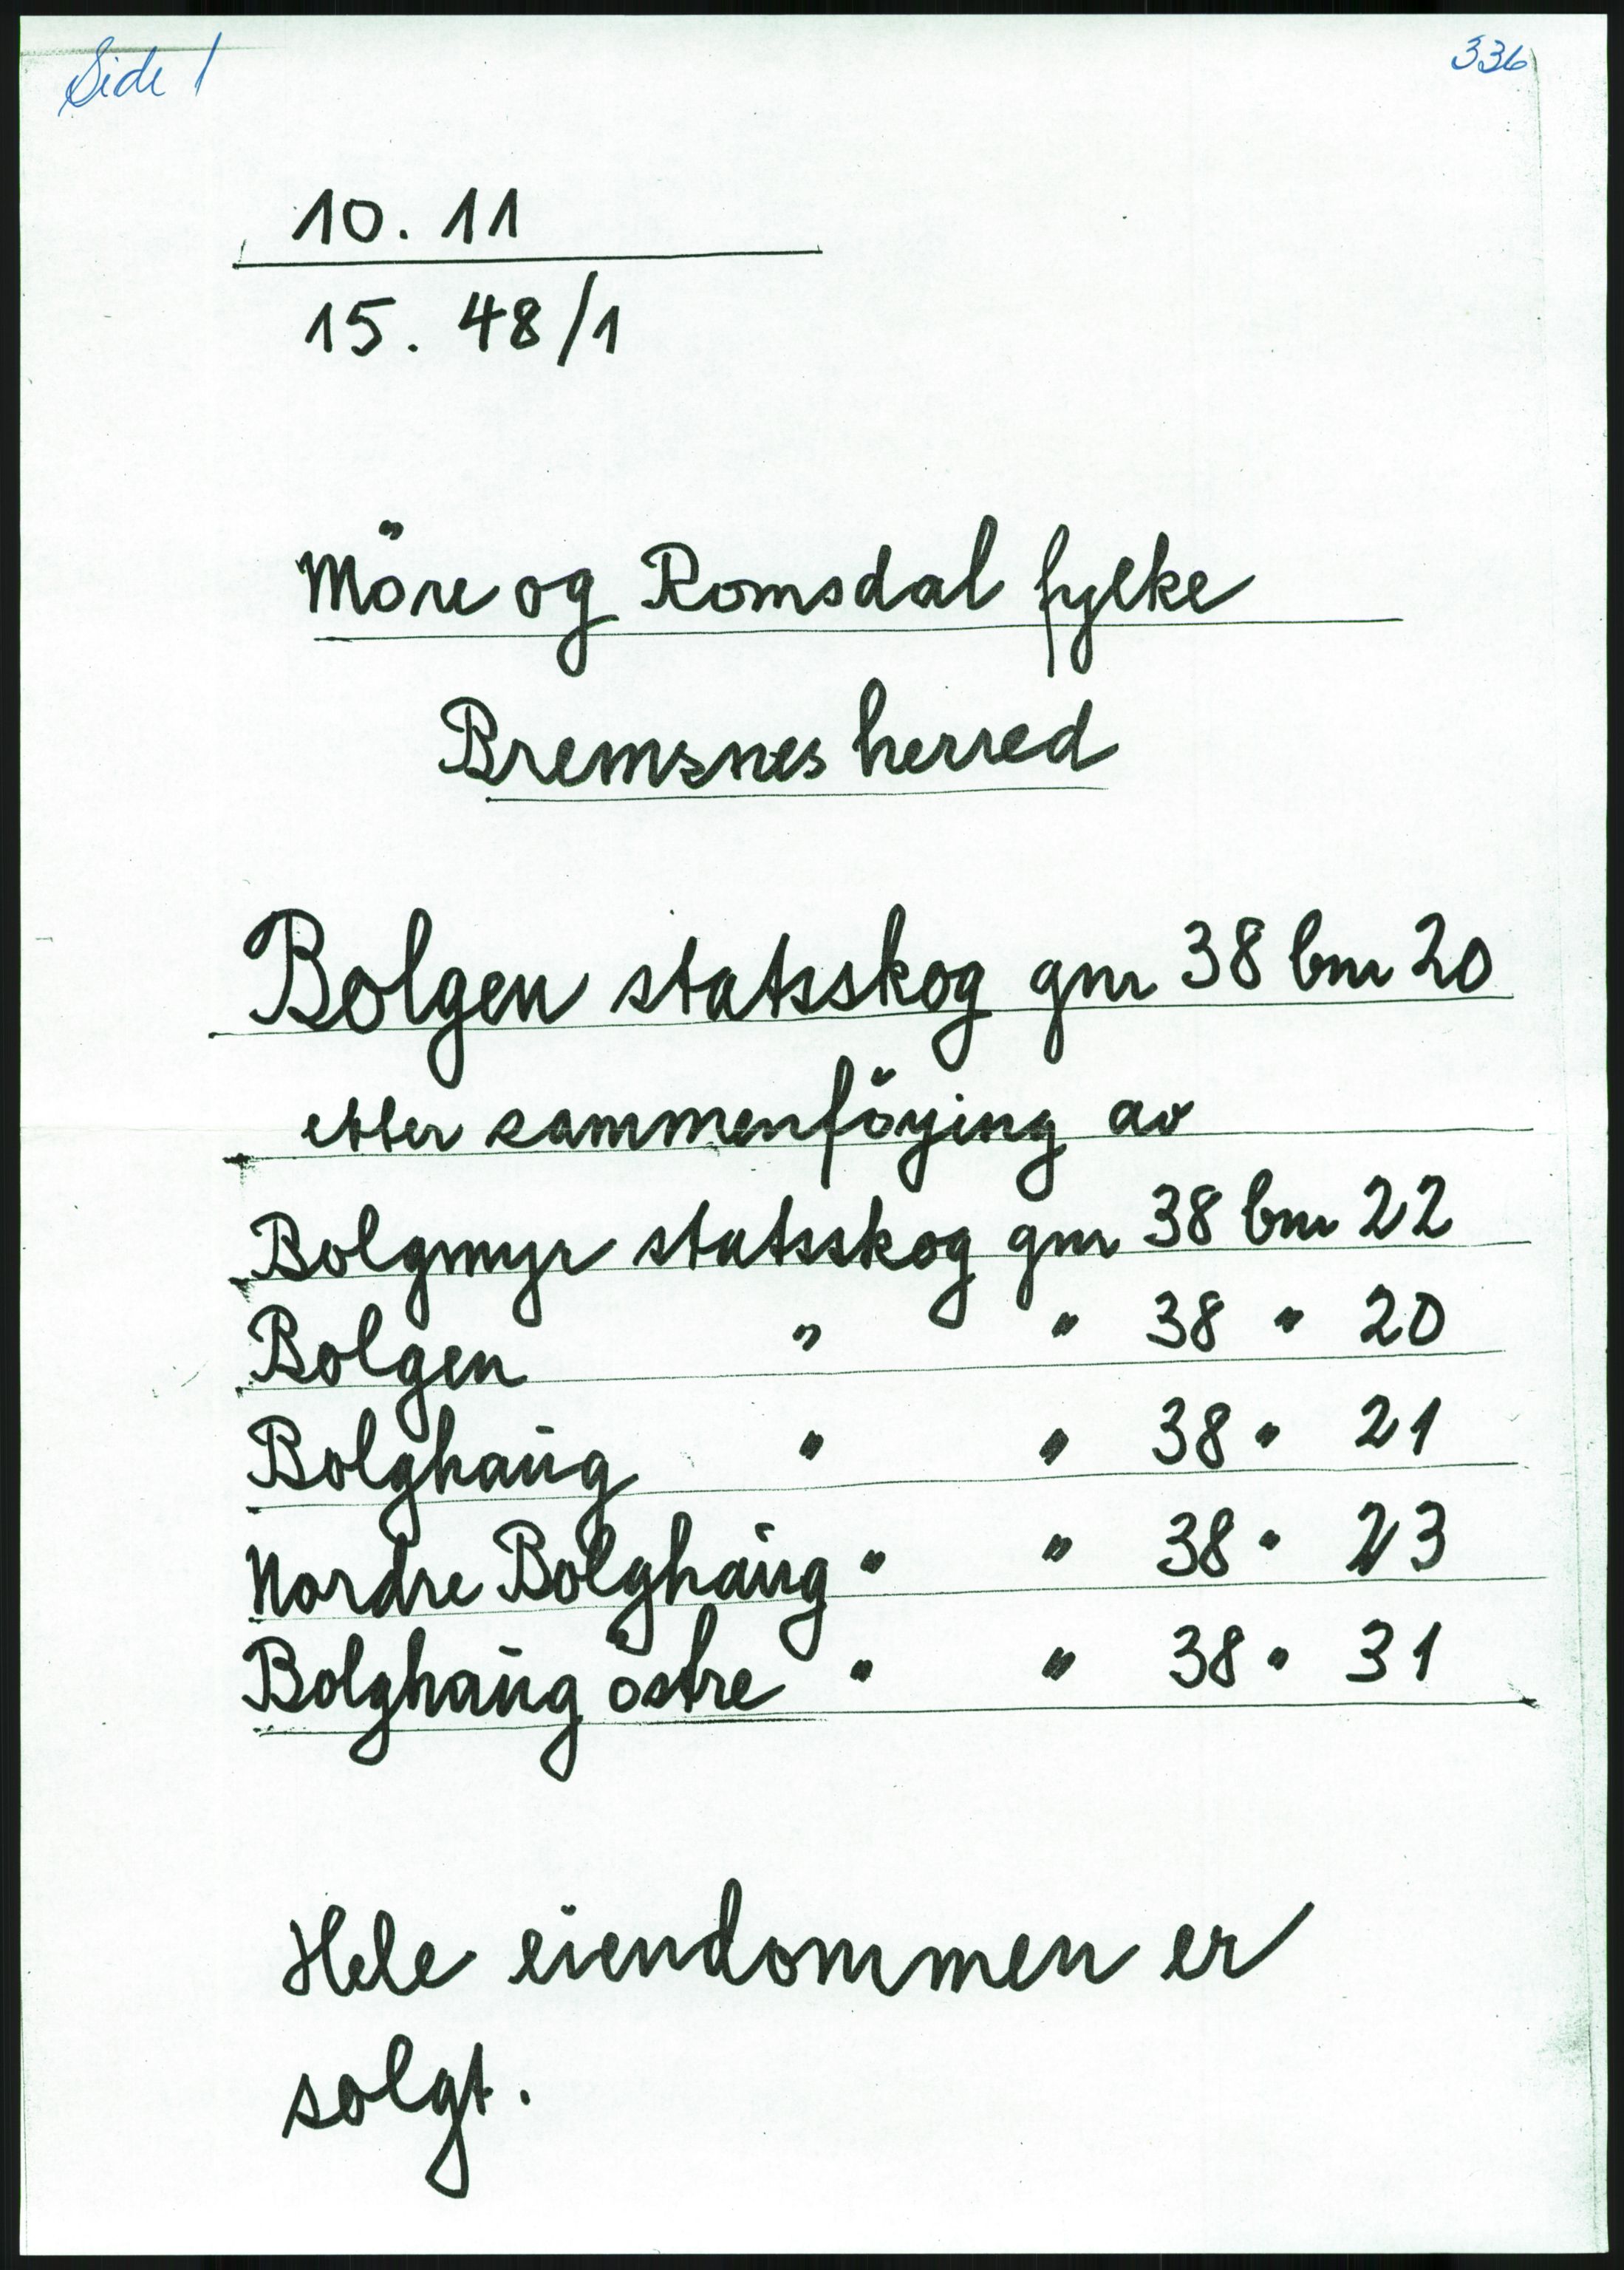 Side 1
336
10. 11
15. 48/1
Möre og Romsdal fylke
Bremsnes herred
Bolgen statsskog gnr 38 bnr 20
etter sammenföying av
Bolgmyr statsskog gnr 38 bnr 22
Bolgen " " 38 " 20
Bolghaug " " 38 " 21
Nordre Bolghaug " " 38 " 23
Bolghaug östre " " 38 " 31
Hele eiendommen er
solgt.